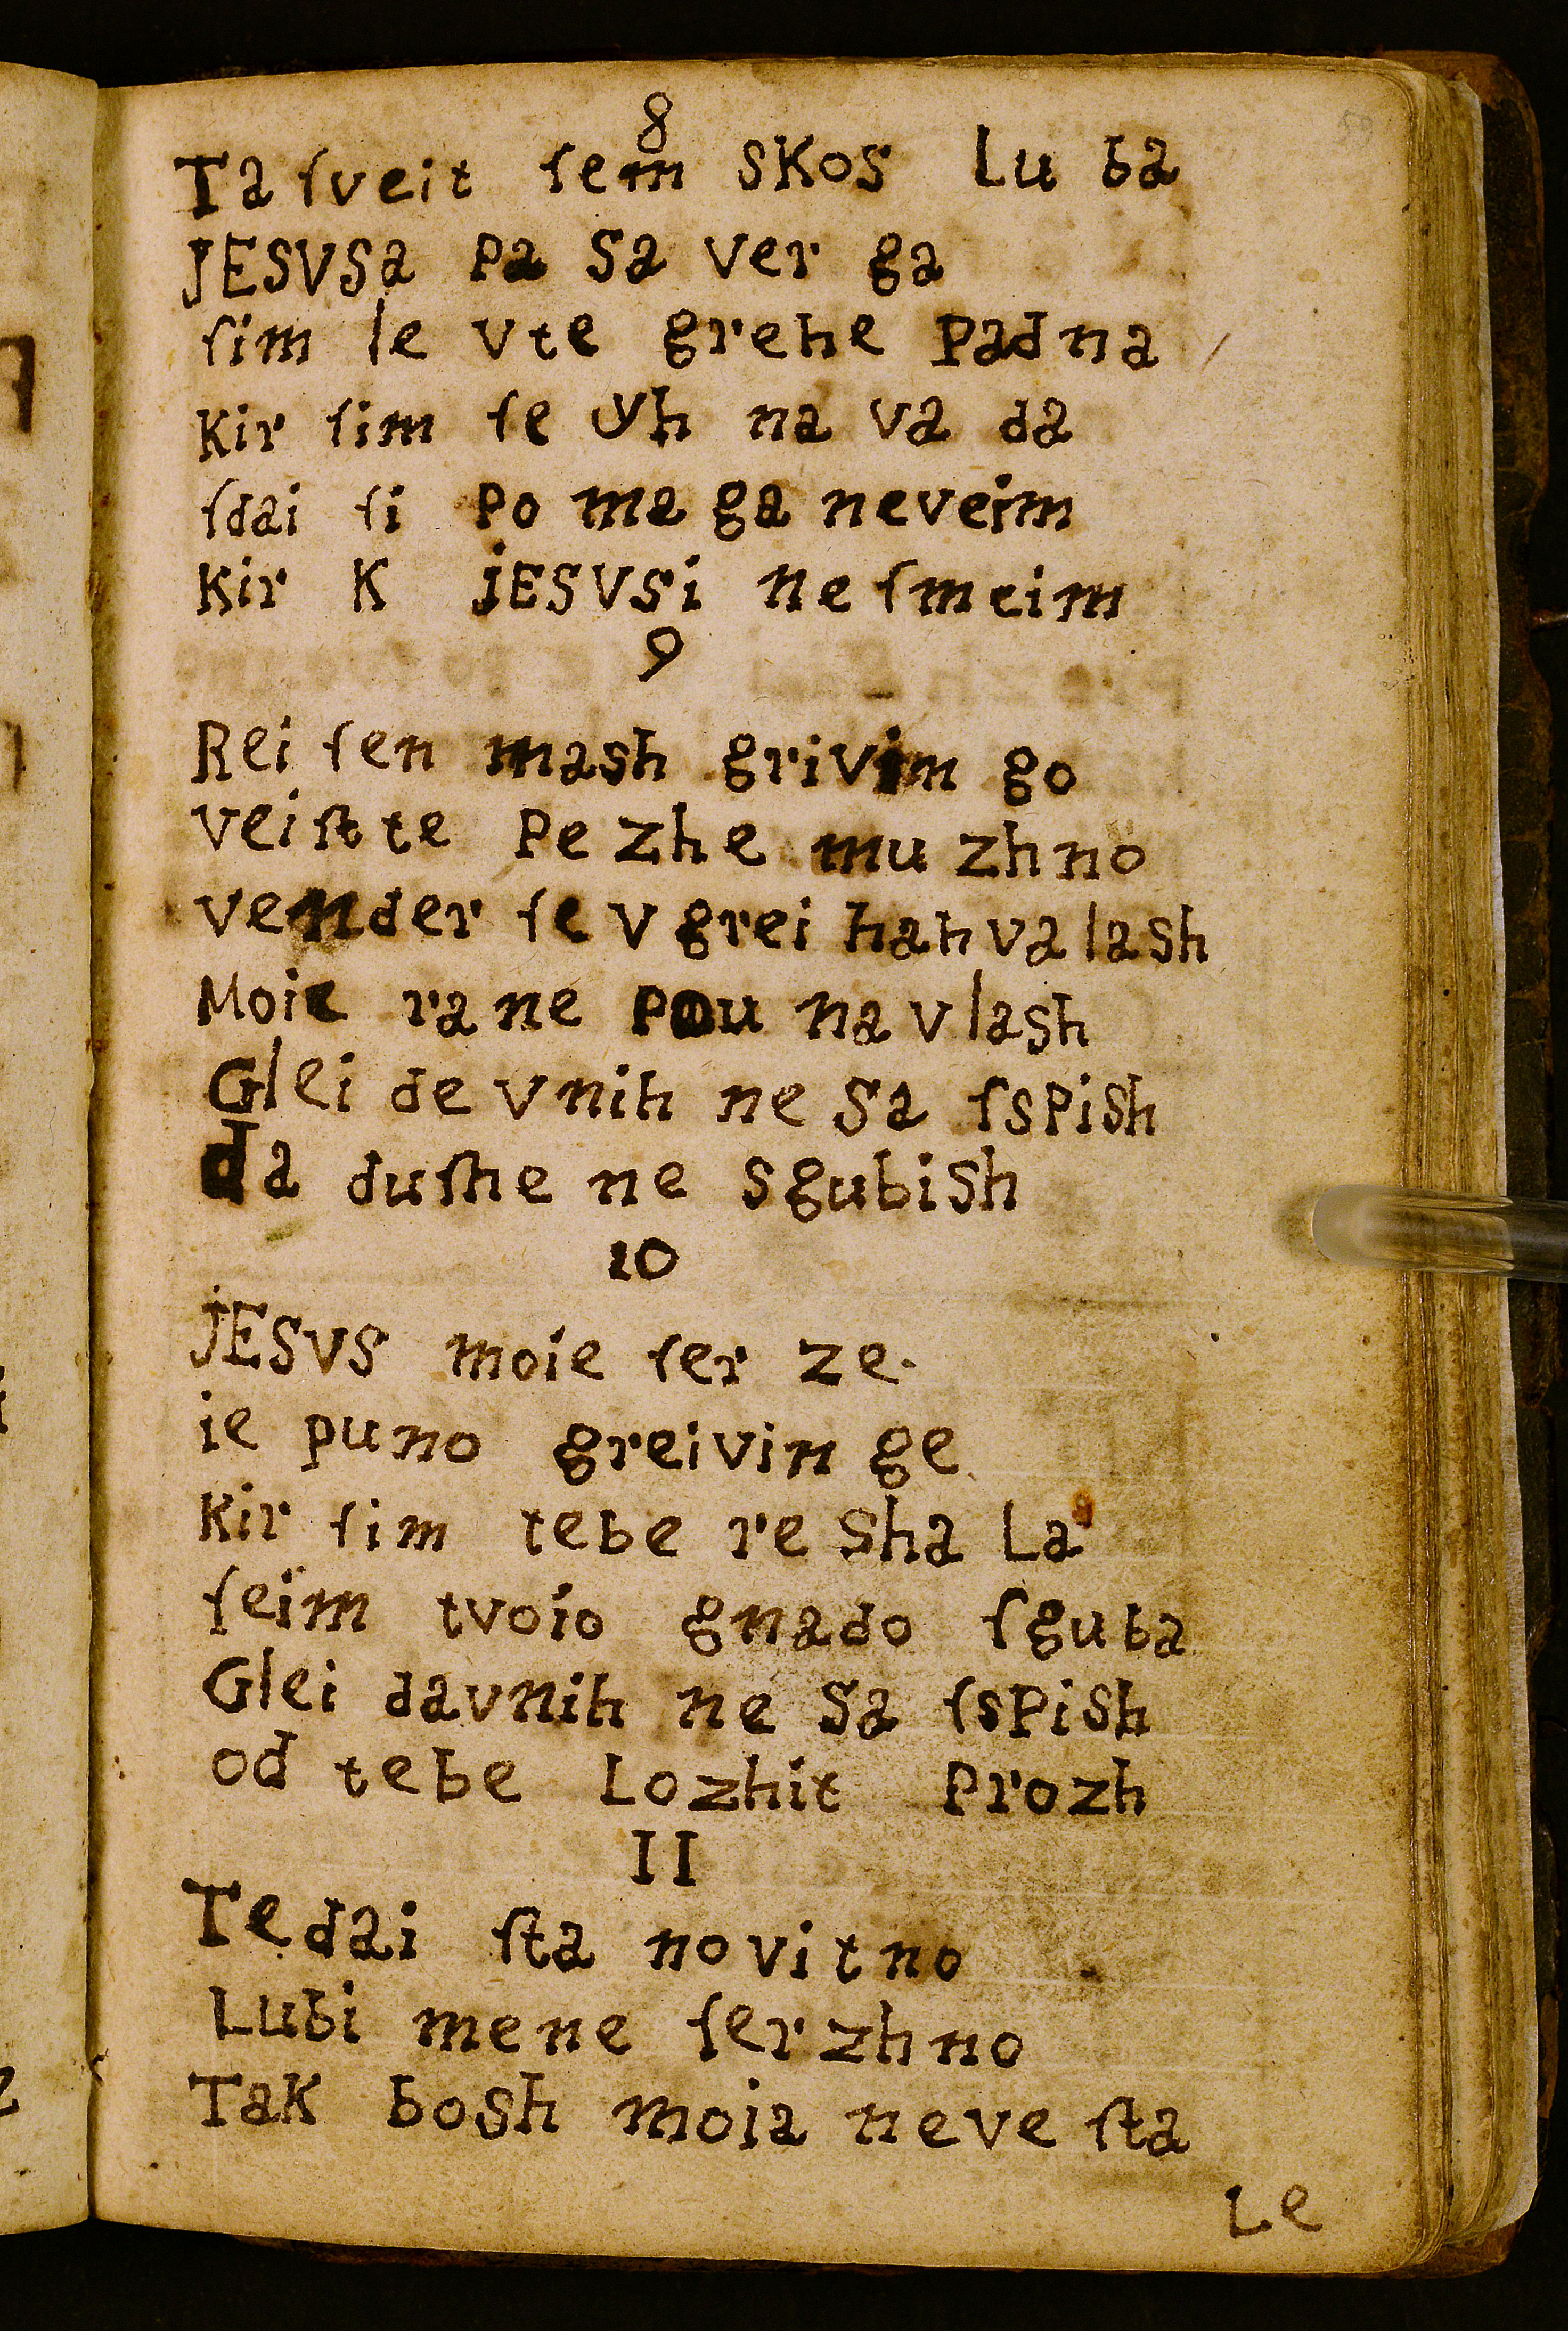 8
Ta ſveit ſem skos Lu ba
JESVSa pa sa ver ga
ſim le vte grehe padna
Kir ſim ſe yh na va da
ſdai ſi po ma ga neveim
Kir K jESVSi ne ſmeim
9
Rei ſen mash grivim go
veiſt te pe zhe mu zhno
vender ſe v grei hah va lash
Moie ra ne pou na vlash
Glei de vnih ne sa ſspish
da duſhe ne sgubish
10
jESVS moie ſer ze.
ie puno greivin ge
Kir ſim tebe re sha La
ſeim tvoio gnado ſguba
Glei davnih ne sa ſspish
od tebe Lozhit prozh
11
Te dai ſta no vitno
Lubi mene ſer zhno
Tak bosh moia neve ſta
Le